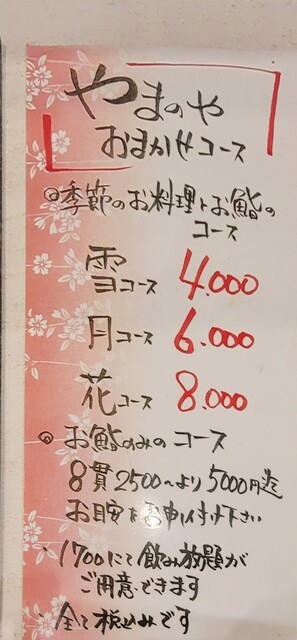 やまのや
おまかせコース
◎季節のお料理とお鮨の
コース
雪コース 4.000
月コース 6.000
花コース 8.000
◎お鮨のみのコース
8貫2500〜より5000円迄
お目安をお申し付け下さい
1700にて飲み放題が
ご用意できます
全て税込みです